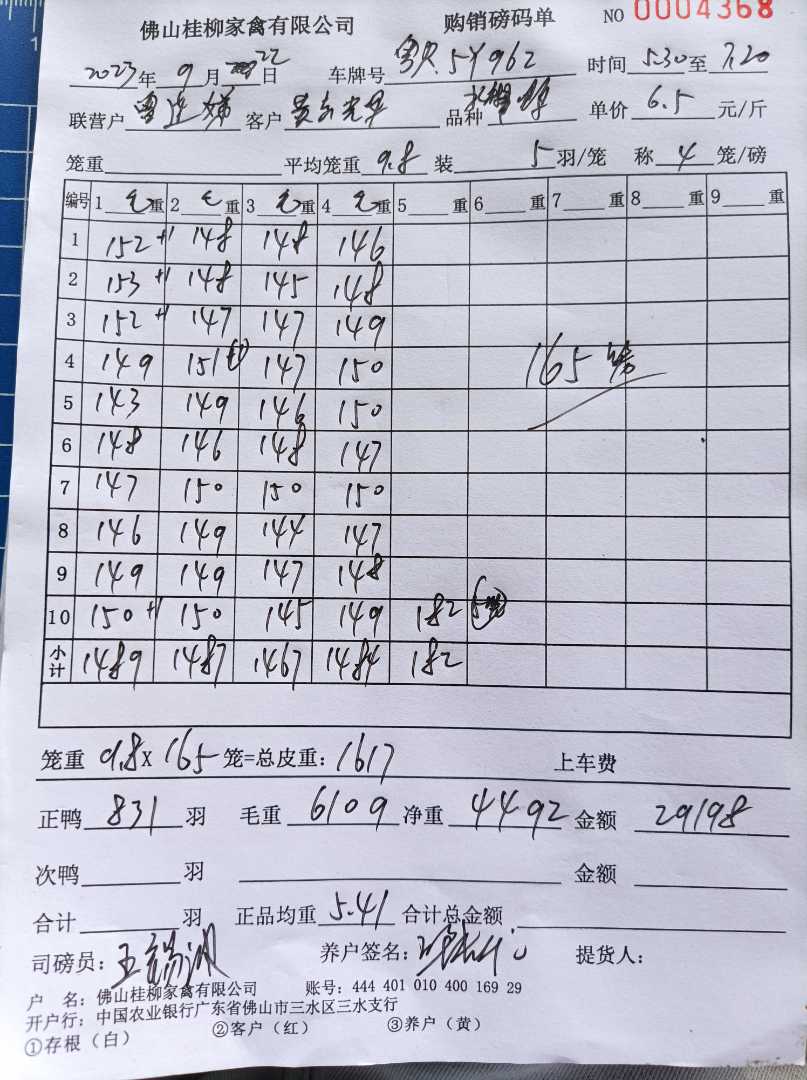 佛山桂柳家禽有限公司 购销磅码单 NO 0004368
2023年9月22日 车牌号 5Y962 时间5.30至7.20
联营户 客户 品种 单价6.5元/斤
笼重 平均笼重9.8 装5羽/笼 称4笼/磅
编号 1毛重 2毛重 3毛重 4毛重 5重 6重 7重 8重 9重
1 152+1 148 148 146
2 153+1 148 145 148
3 152+1 147 147 149
4 149 151(+1) 147 150 165
5 143 149 146 150
6 148 146 148 147
7 147 150 150 150
8 146 149 144 147
9 149 149 147 148
10 150+1 150 145 149 182
小计 1489 1487 1467 1484 182
笼重9.8×165笼=总皮重:1617 上车费
正鸭831羽 毛重6109净重4492金额29198
次鸭 羽 金额
合计 羽 正品均重5.41合计总金额
司磅员: 养户签名: 提货人:
户 名:佛山桂柳家禽有限公司 账号:444 401 010 400 169 29
开户行:中国农业银行广东省佛山市三水区三水支行
①存根(白) ②客户(红) ③养户(黄)